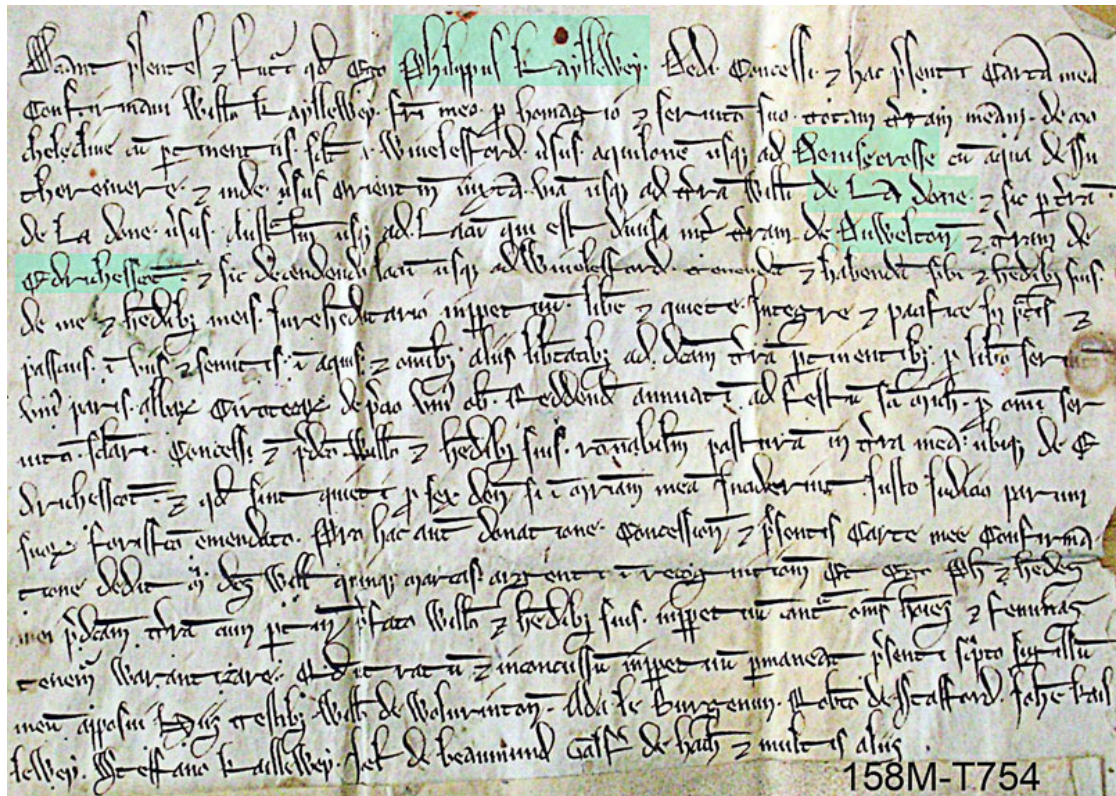 Sciant p̄sentes ⁊ futuri qd̄ Ego Philippus Kayllewey. Dedi Concessi ⁊ hac p̄senti Carta mea
Confirmavi Willo Kayllewey. fr̄i meo. p̱ homagio ⁊ servitio suo totam t̄ram meam. de mo
cheleclive cū p̱tinentiis. sclt a Winelesford. v̄sus aquilonē usq; ad Demiscrosse cū aqua de Su
theremere. ⁊ inde. v̄sus orientem iuxta. viā usq; ad t̄rā Willi de La done. ⁊ sic p̱ t̄rā
de La done. v̄sus. Austrum usq; ad. Lacū qui est divisa int̄ t̄ram. de Duwelton ⁊ t̄ram de
Edrichescote ⁊ sic decendendo lacū usq; ad Winelesford. tenendā ⁊ habendā sibi ⁊ h̄edib; suis.
de me ⁊ h̄edib; meis. Iure h̄editario inp̱petuū. lib̄e ⁊ quiete. Integre ⁊ pacifice In p̄tis ⁊
pascuis. ī viis ⁊ semitis. ī aquis. ⁊ omīb; aliis lib̄tatib; ad. dc̄am t̄rā p̱tinentib; p̱
uniꝰ paris. albaꝝ Cirotecaꝝ de p̄cio uniꝰ ob. Reddend annuatī. ad festū sc̄i Mich. p̱ omī ser
vitō. sclari. Concessi ⁊ p̄dc̄o Willo ⁊ h̄edib; suis. rōnabilem pasturā in t̄ra mea. ubiq; de E
drichescote. ⁊ qd̄ sint quieti p̱ sex den̄ si ī m̄iam meā Inciderint. Iusto Iudicio parium
suoꝝ forisfc̄o emendato. Pro hac aut̄ donatione. Concessione ⁊ p̄sentis Carte mee Confirma
tione dedit m̄ dc̄s Will quinq; marcas. argenti ī recognitionē Et Ego Ph ⁊ h̄edes
mei p̄dc̄am t̄rā cum p̱tin p̄fato Willo ⁊ h̄edib; suis. inp̱petuū cont̄ om̄s hōies ⁊ feminas
tenem̄ Warantizare. Qd̄ ut ratū ⁊ inconcussū inp̱petuū p̱maneat p̄senti sc̄pto sigillū
meū apposui Hiis testib; Will de Wolvrinton. Ada le Burgenun. Rob̄to de Stafford. Joh̄e Kail
lewey. Steffano Kaillewey. Jol de beamund Galf̄ de hach ⁊ multis aliis
158M-T754